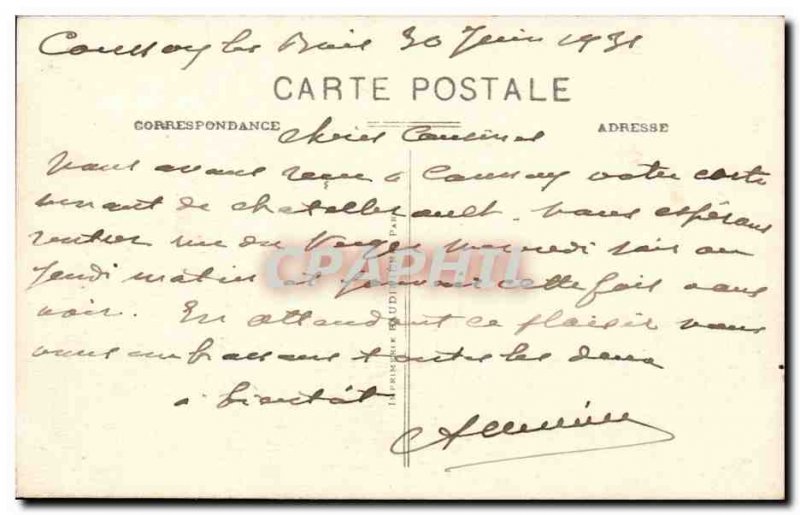 Coussay les Bois 30 Juin 1931
CARTE POSTALE
CORRESPONDANCE
ADRESSE
Chères Cousines
Nous avons reçu à Coussay votre carte
venant de chatellerault. Nous espérons
rentrer rue du Verger mercredi soir ou
Jeudi matin et pouvoir cette fois vous
voir. En attendant ce plaisir nous
vous embrassons toutes les deux
a bientôt
IMPRIMERIE BAUDINIÈRE PAR
CPAPHIL